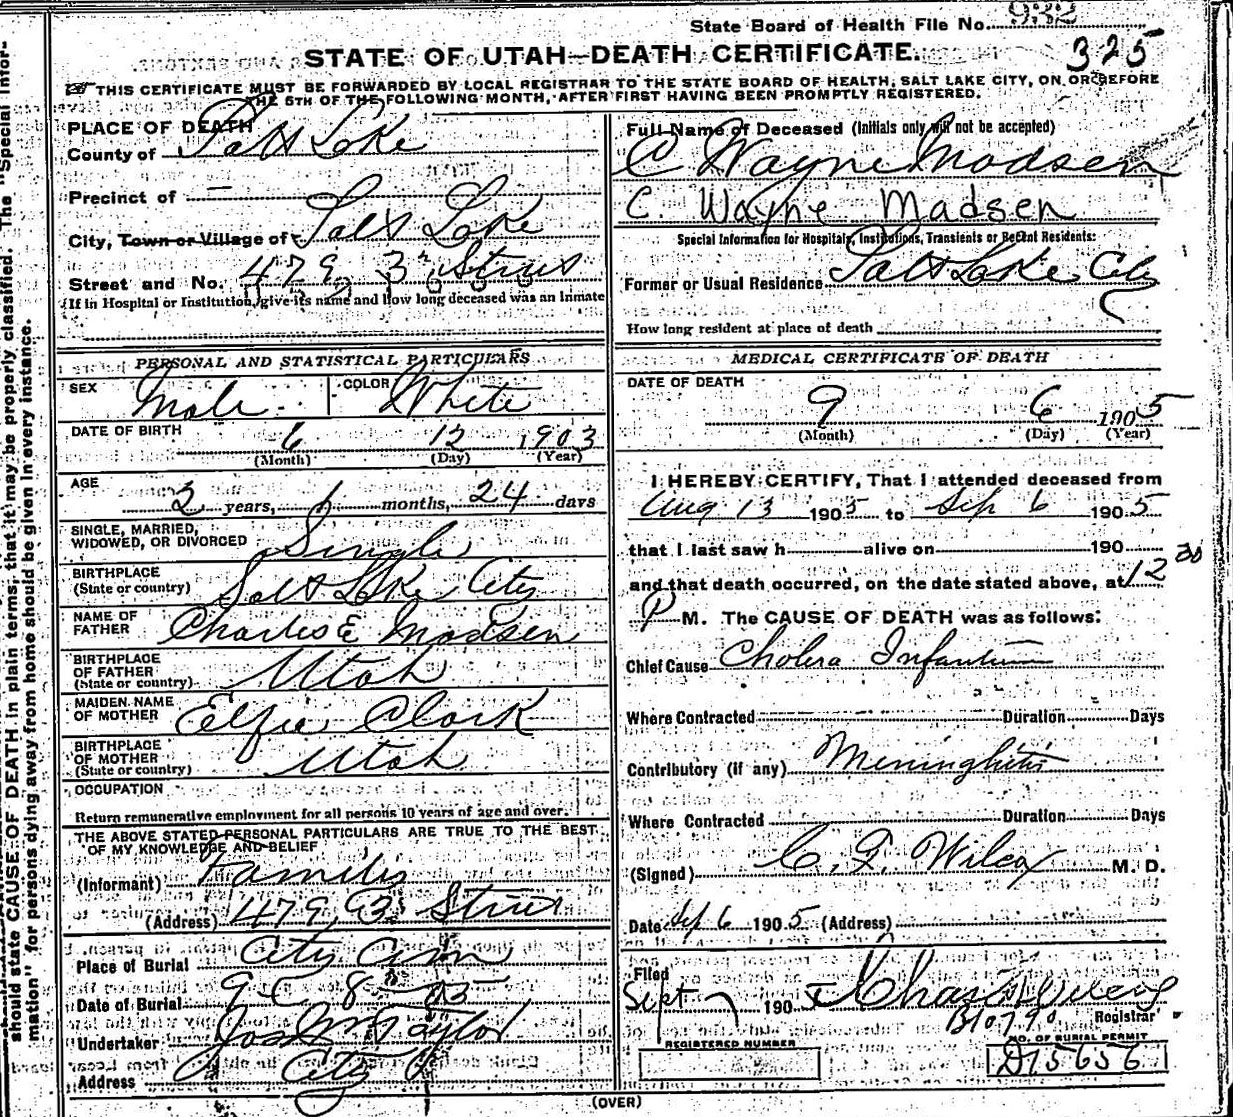 State Board of Health File No. 932
325
STATE OF UTAH—DEATH CERTIFICATE.
THIS CERTIFICATE MUST BE FORWARDED BY LOCAL REGISTRAR TO THE STATE BOARD OF HEALTH, SALT LAKE CITY, ON OR BEFORE
THE 5TH OF THE FOLLOWING MONTH, AFTER FIRST HAVING BEEN PROMPTLY REGISTERED.
PLACE OF DEATH
County of Salt Lake
Precinct of —
City, Town or Village of Salt Lake
Street and No. 479 3rd
(If in Hospital or Institution, give its name and how long deceased was an Inmate
Full Name of Deceased (Initials only will not be accepted)
C Wayne Madsen
C. Wayne Madsen
Special Information for Hospitals, Institutions, Transients or Recent Residents:
Former or Usual Residence Salt Lake City
How long resident at place of death
PERSONAL AND STATISTICAL PARTICULARS
SEX Male COLOR White
DATE OF BIRTH 6 12 1903
(Month) (Day) (Year)
AGE
2 years, months, 24 days
SINGLE, MARRIED,
WIDOWED, OR DIVORCED Single
BIRTHPLACE
(State or country) Salt Lake City
NAME OF
FATHER Charles E Madsen
BIRTHPLACE
OF FATHER
(State or country) Utah
MAIDEN NAME
OF MOTHER Elfie Clark
BIRTHPLACE
OF MOTHER
(State or country) Utah
OCCUPATION
Return remunerative employment for all persons 10 years of age and over.
THE ABOVE STATED PERSONAL PARTICULARS ARE TRUE TO THE BEST
OF MY KNOWLEDGE AND BELIEF
(Informant) Family
(Address) 479
Place of Burial City Cem
Date of Burial 8 05
Undertaker Jos Wm Taylor
Address City
MEDICAL CERTIFICATE OF DEATH
DATE OF DEATH
9 6 1905
(Month) (Day) (Year)
I HEREBY CERTIFY, That I attended deceased from
Aug 13 1905 to Sep 6 1905
that I last saw h alive on 190
and that death occurred, on the date stated above, at 12 30
P M. The CAUSE OF DEATH was as follows:
Chief Cause Cholera Infantum
Where Contracted Duration Days
Contributory (if any) Meninghitis
Where Contracted Duration Days
(Signed) C. F. Wilcox M. D.
Date Sep 6 1905 (Address)
Filed
Sept 7 1905
Registrar
B10790
REGISTERED NUMBER
NO. OF BURIAL PERMIT
D15656
(OVER)
should state CAUSE OF DEATH in plain terms, that it may be properly classified. The "Special Infor-
mation" for persons dying away from home should be given in every instance.